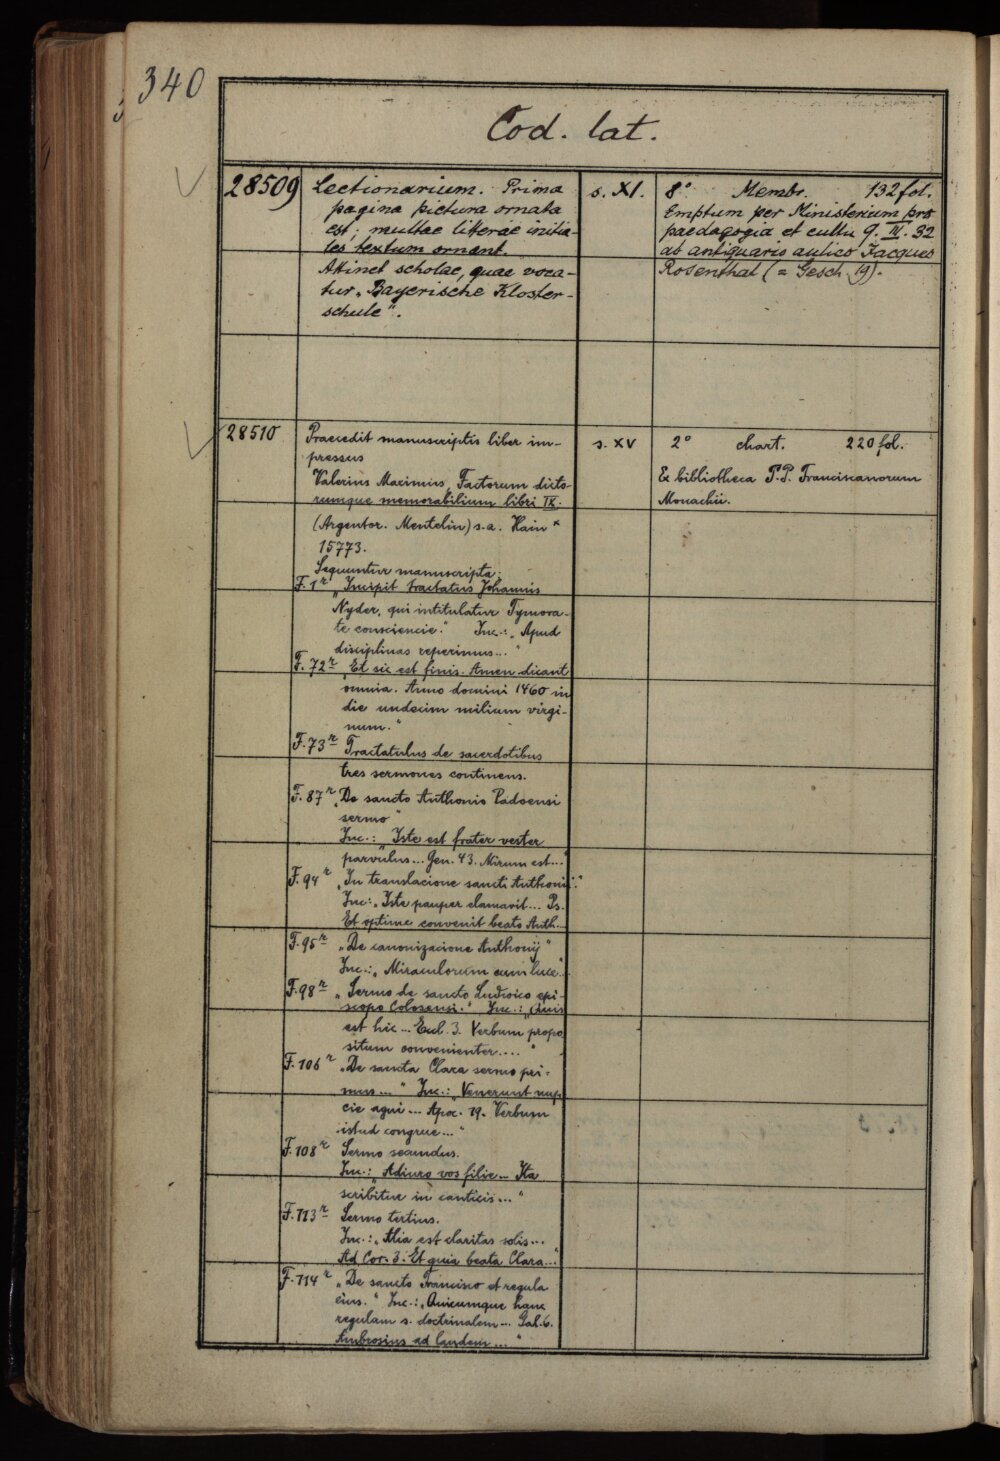 340
Cod. lat.
28509
Lectionarium. Prima
pagina pictura ornata
est; multae litterae initia-
les textum ornant.
Attinet scholae, quae voca-
tur „Bayerische Kloster-
schule“.
s. XI.
8° Membr. 132 fol.
Emptum per Ministerium pro
paedagogia et cultu 9. IV. 32
ab antiquario aulico Jacques
Rosenthal (= Gesch. 19).
28510
Praecedit manuscriptis liber im-
pressus
Valerius Maximus Factorum dicto-
rumque memorabilium libri IX.
(Argentor. Mentelin) s. a. Hain *
15773.
Sequuntur manuscripta:
F. 1r „Incipit tractatus Johannis
Nyder, qui intitulatur Tymora-
te consciencie.“ Inc.: „Apud
disciplinas reperimus...“
F. 72r „Et sic est finis. Amen dicant
omnia. Anno domini 1460 in
die undecim milium virgi-
num.“
F. 73r Tractatulus de sacerdotibus
tres sermones continens.
F. 87r „De sancto Anthonio Padoensi
sermo“
Inc.: „Iste est frater vester
parvulus... Gen. 43. Mirum est...“
F. 94r „In translacione sancti Anthonii:“
Inc.: „Iste pauper clamavit... Ps.
Et optime convenit beato Anth...
F. 95r „De canonizacione Anthonij“
Inc.: „Miraculorum cum luce.“
F. 98r „Sermo de sancto Ludwico epi-
scopo Colosensi.“ Inc.: „Quis
est hic... Eccl. 3. Verbum propo
situm convenienter....“
F. 106r „De sancta Clara sermo pri-
mus...“ Inc.: „Venerunt nup
cie agni... Apoc. 19. Verbum
istud congrue...“
F. 108r Sermo secundus.
Inc.: „Adiuro vos filie... Ita
scribitur in canticis...“
F. 113r Sermo tertius.
Inc.: „Alia est claritas solis...
Ad Cor. 3. Et quia beata Clara...“
F. 114r „De sancto Francisco et regula
eius.“ Inc.: „Quicumque hanc
regulam s. doctrinalem... Gal. 6.
Ambrosius ad laudem...“
s. XV
2° chart. 220 fol.
Ex bibliotheca P.P. Franciscanorum
Monachii.